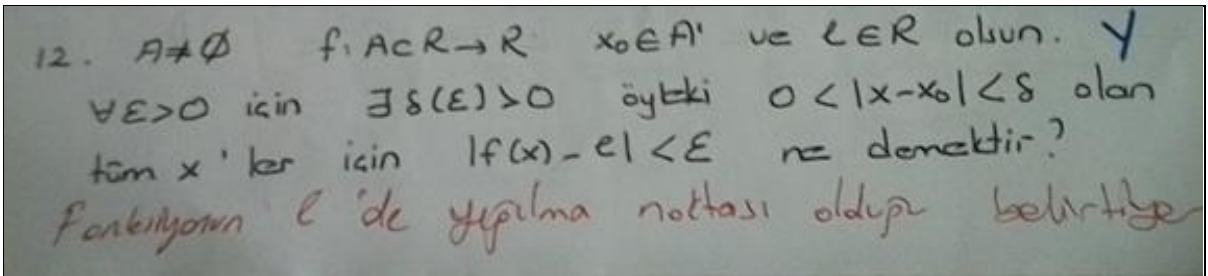 12. A≠∅ f: A⊂R→R x₀∈A' ve l∈R olsun. Y
∀ε>0 için ∃δ(ε)>0 öyleki 0<|x-x₀|<δ olan
tüm x'ler için |f(x)-l|<ε ne demektir?
Fonksiyonun l'de yığılma noktası olduğu belirtiliyor